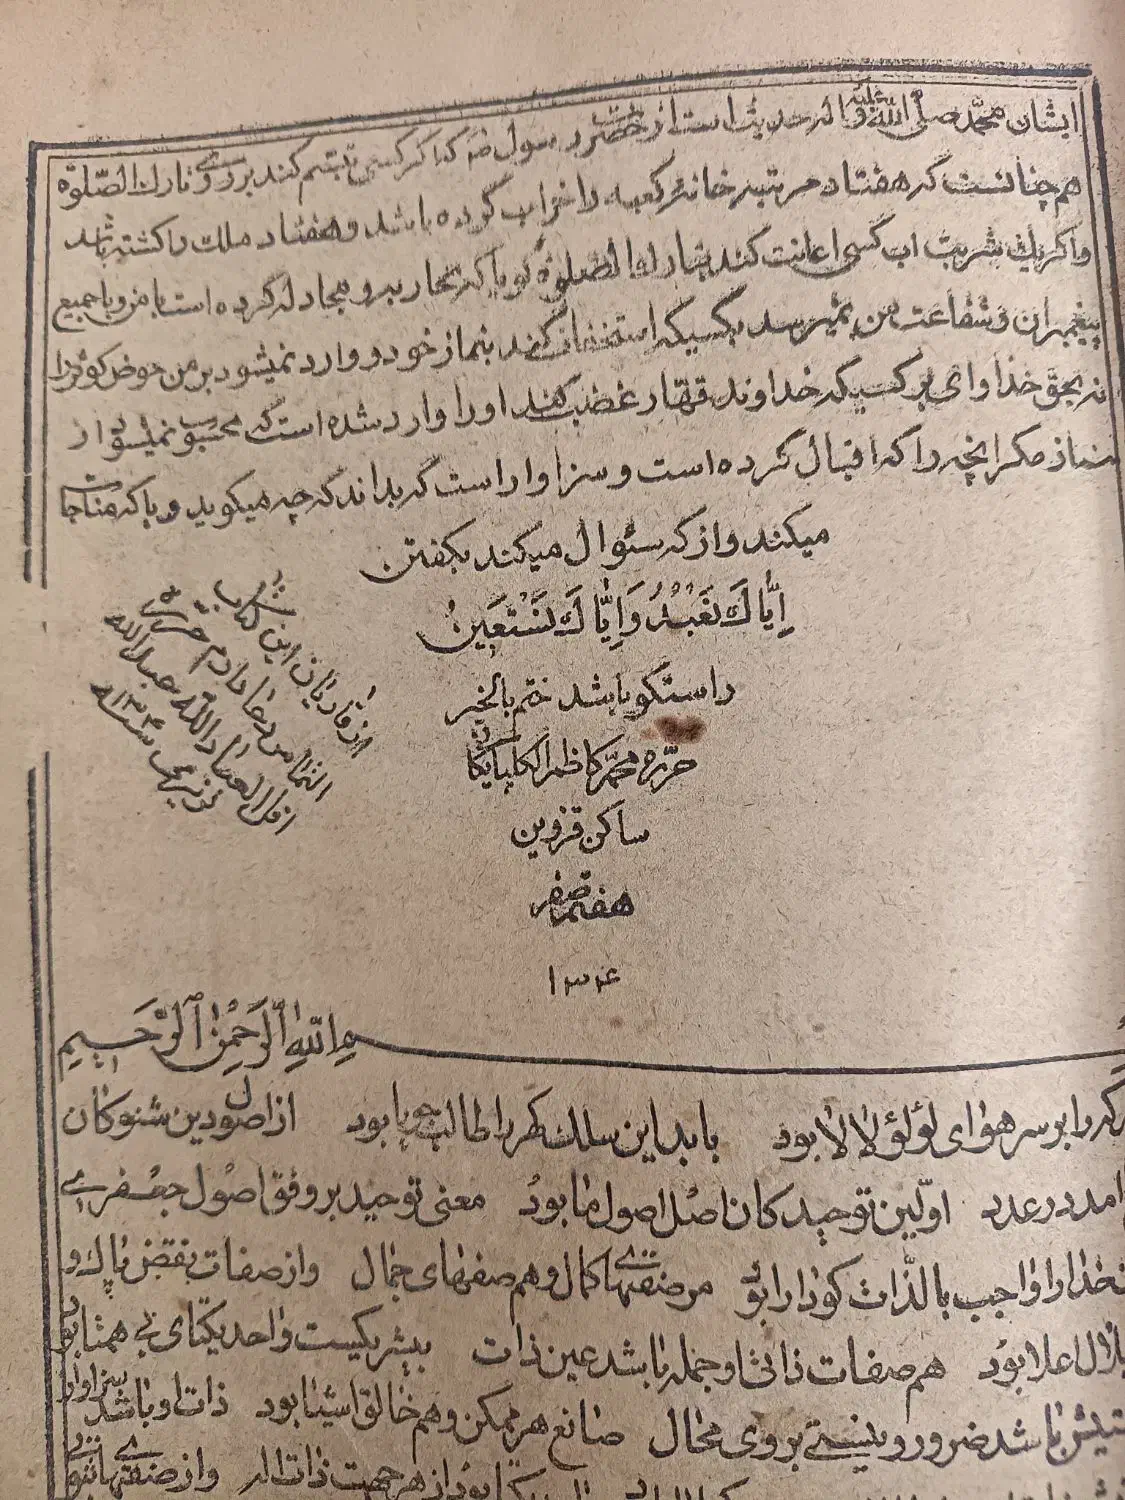 ایشان محمد صلی الله علیه و اله حدیث است از حضرت رسول ص که اگر کسی تبسم کند بر روی تارك الصلوة
هم چنانست که هفتاد مرتبه خانه کعبه را خراب کرده باشد و هفتاد ملك را کشته باشد
و اگر بیك شربت اب کسی اعانت کند بتارك الصلوة کویا که محاربه و مجادله کرده است با من و با جمیع
پیغمبران و شفاعت من نمیرسد بکسیکه استخفاف کند بنماز خود و وارد نمیشود بر من حوض کوثر را
نه بحق خدا وای بر کسیکه خداوند قهار غضب کند او را وارد شده است که محسوب نمیشود از
نماز مکر انچه را که اقبال کرده است و سزاوار است که بداند که چه میکوید و با که مناجات
میکند و از که سئوال میکند بکفتن
اِیّاكَ نَعْبُدُ وَاِیّاكَ نَسْتَعینُ
راستکو باشد ختم بالخیر
حرّره محمّد کاظم الکلپایکانی
ساکن قزوین
هفتم صفر
۱۳۰۴
از قاریان این کتاب
التماس دعا دارم حرره
اقل العباد الله عبدالله
سنه ۱۳۰۴
بسم الله الرحمن الرحیم
هرکه را بر سر هوای لؤلؤ لالا بود باید این سلك کهر را طالب جویا بود از اصول دین شنو کان
امد در عدد اولین توحید کان اصل اصول ما بود معنی توحید بر وفق اصول جعفری
خدا را واجب بالذات کو دارا بود مر صفتهای کمال و هم صفتهای جمال و از صفات نقص پاك و
اعلا بود هم صفات ذاتی او جمله باشد عین ذات بیشریکست و احد یکتای بی همتا بود
باشد ضرور و نیستی بر وی محال صانع هر ممکن و هم خالق اشیا بود ذات او باشد سزاوار
از هر جهت ذات اله و از صفتهای